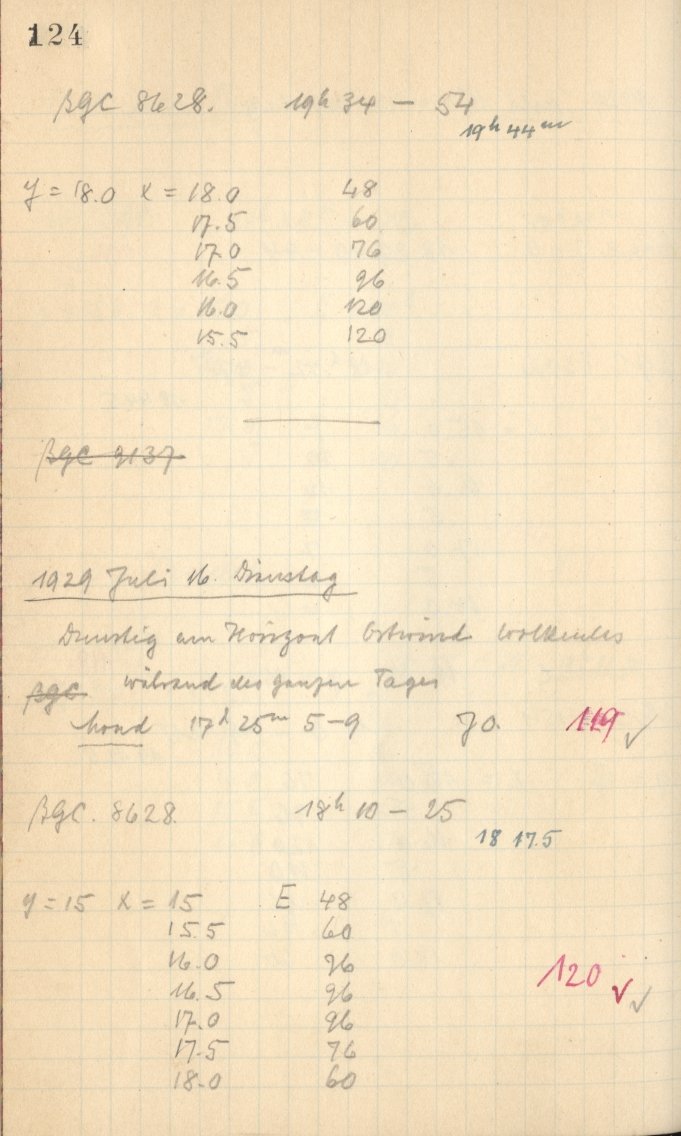 124
βGC 8628. 19h 34 — 54
19h 44m
y = 18.0 x = 18.0 48
17.5 60
17.0 76
16.5 96
16.0 120
15.5 120
βGC 9137
1929 Juli 16. Dienstag
Dunstig am Horizont Ostwind Wolkenlos
βGC während des ganzen Tages
Mond 17h 25m 5–9 Jo. 119 ✓
βGC. 8628 18h 10 — 25
18 17.5
y = 15 x = 15 E 48
15.5 60
16.0 76
16.5 96
120 ✓ ✓
17.0 96
17.5 76
18.0 60